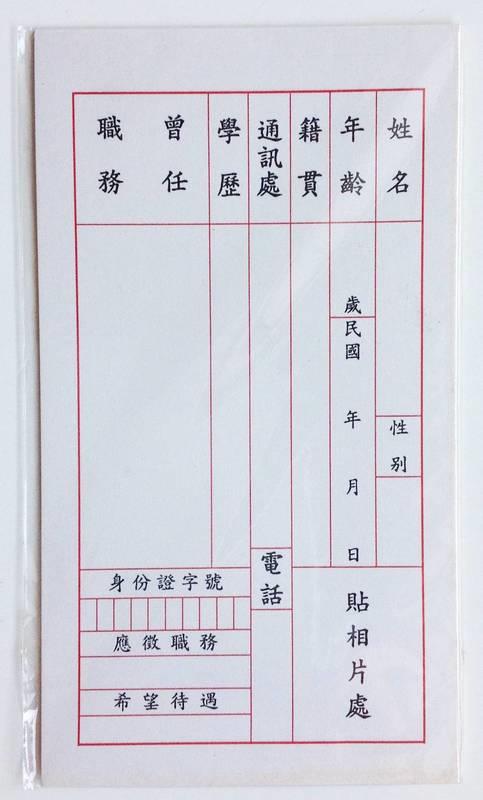 姓名
性別
年齡
歲
民國 年 月 日
籍貫
貼相片處
通訊處
電話
學歷
曾任
職務
身份證字號
應徵職務
希望待遇